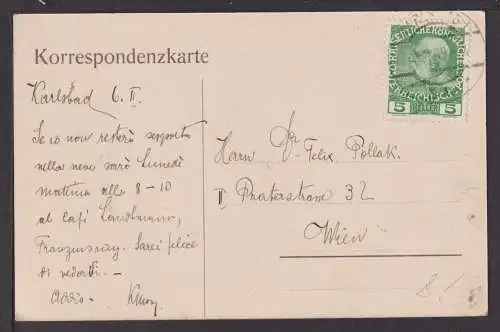 Korrespondenzkarte
Karlsbad 6. II.
Se io non resterò sepolto
nella neve sarò Lunedì
mattina alle 8-10
al Café Landtmann,
Franzensring. Sarei felice
di vederti. -
Addio.
Herrn Dr Felix Pollak.
II Praterstrasse 32
Wien
8.-
5 HELLER 5